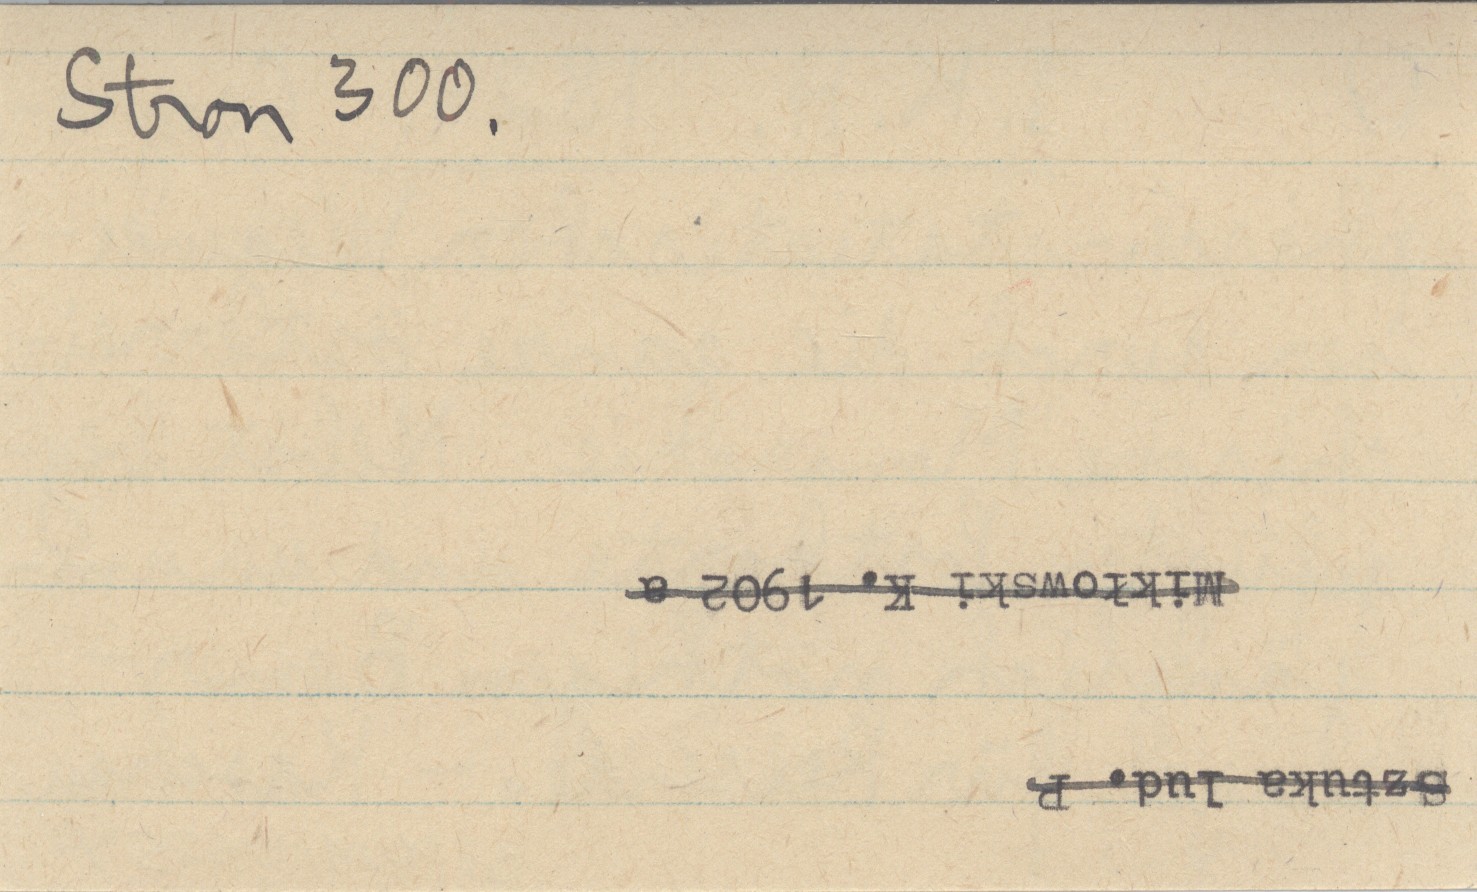 Stron 300.
Sztuka lud. P
Mikłowski K. 1902 a